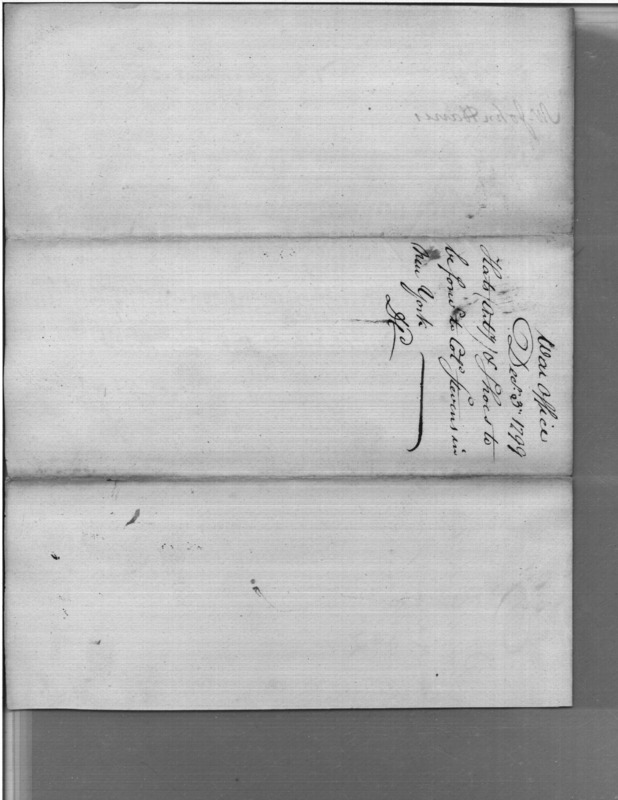 War Office
Decr. 3d. 1799
Hats (Arty) & Shoes to
be forwd. to Col Stevens in
New York
Mr. John Harris